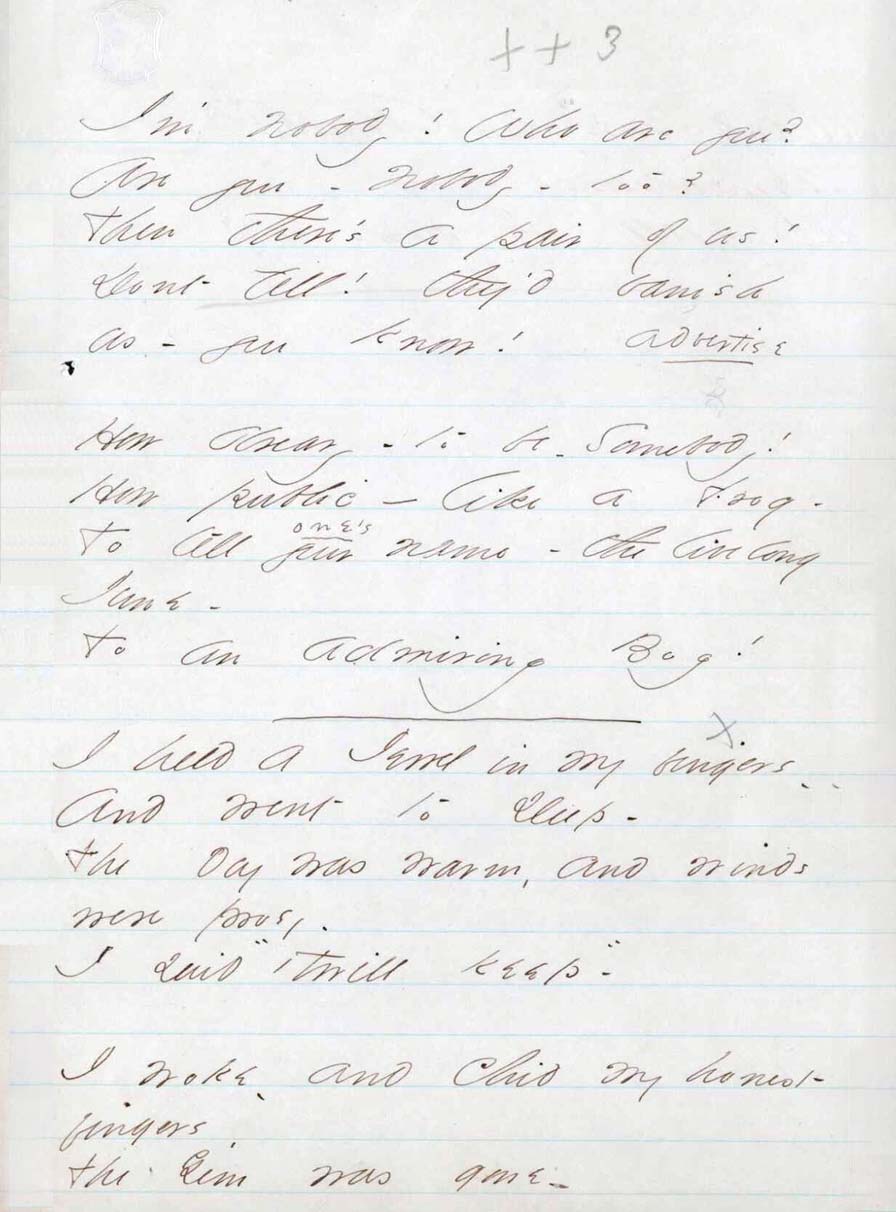 + + 3
I'm Nobody! Who are you?
Are you - Nobody - too?
Then there's a pair of us!
Dont tell! they'd banish
us - you know! advertise
How dreary - to be - Somebody!
How public - like a Frog -
one's
To tell your name - the livelong
June -
To an admiring Bog!
x
I held a Jewel in my fingers -
And went to sleep -
The day was warm, and winds
were prosy -
I said "'Twill keep" -
I woke - and chid my honest
fingers,
The Gem was gone -